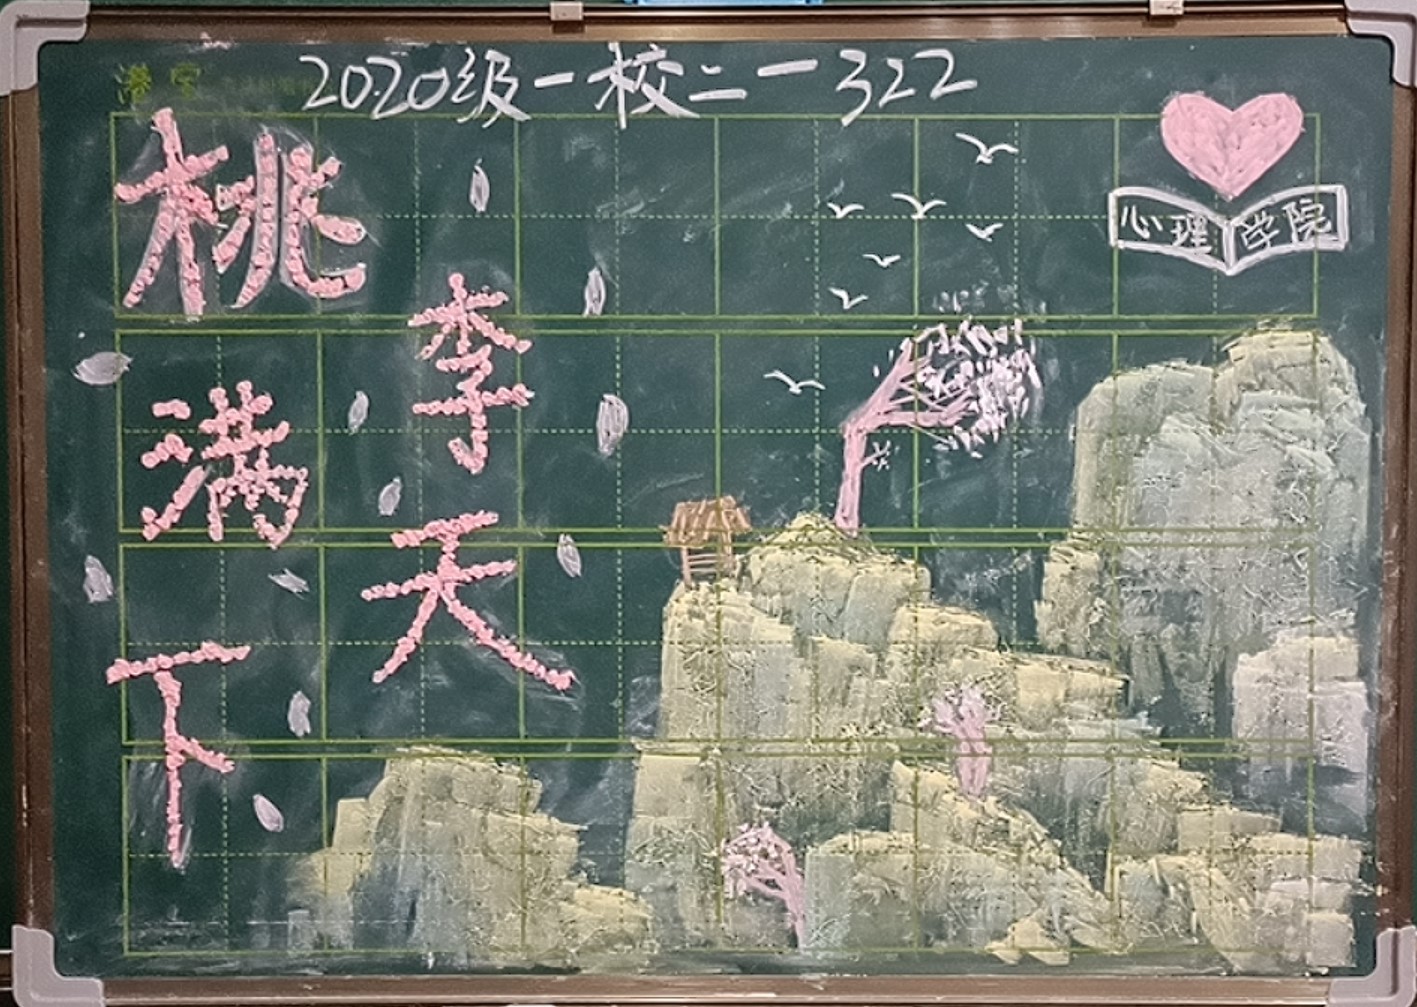 2020级-校二-322
桃李满天下
心理学院